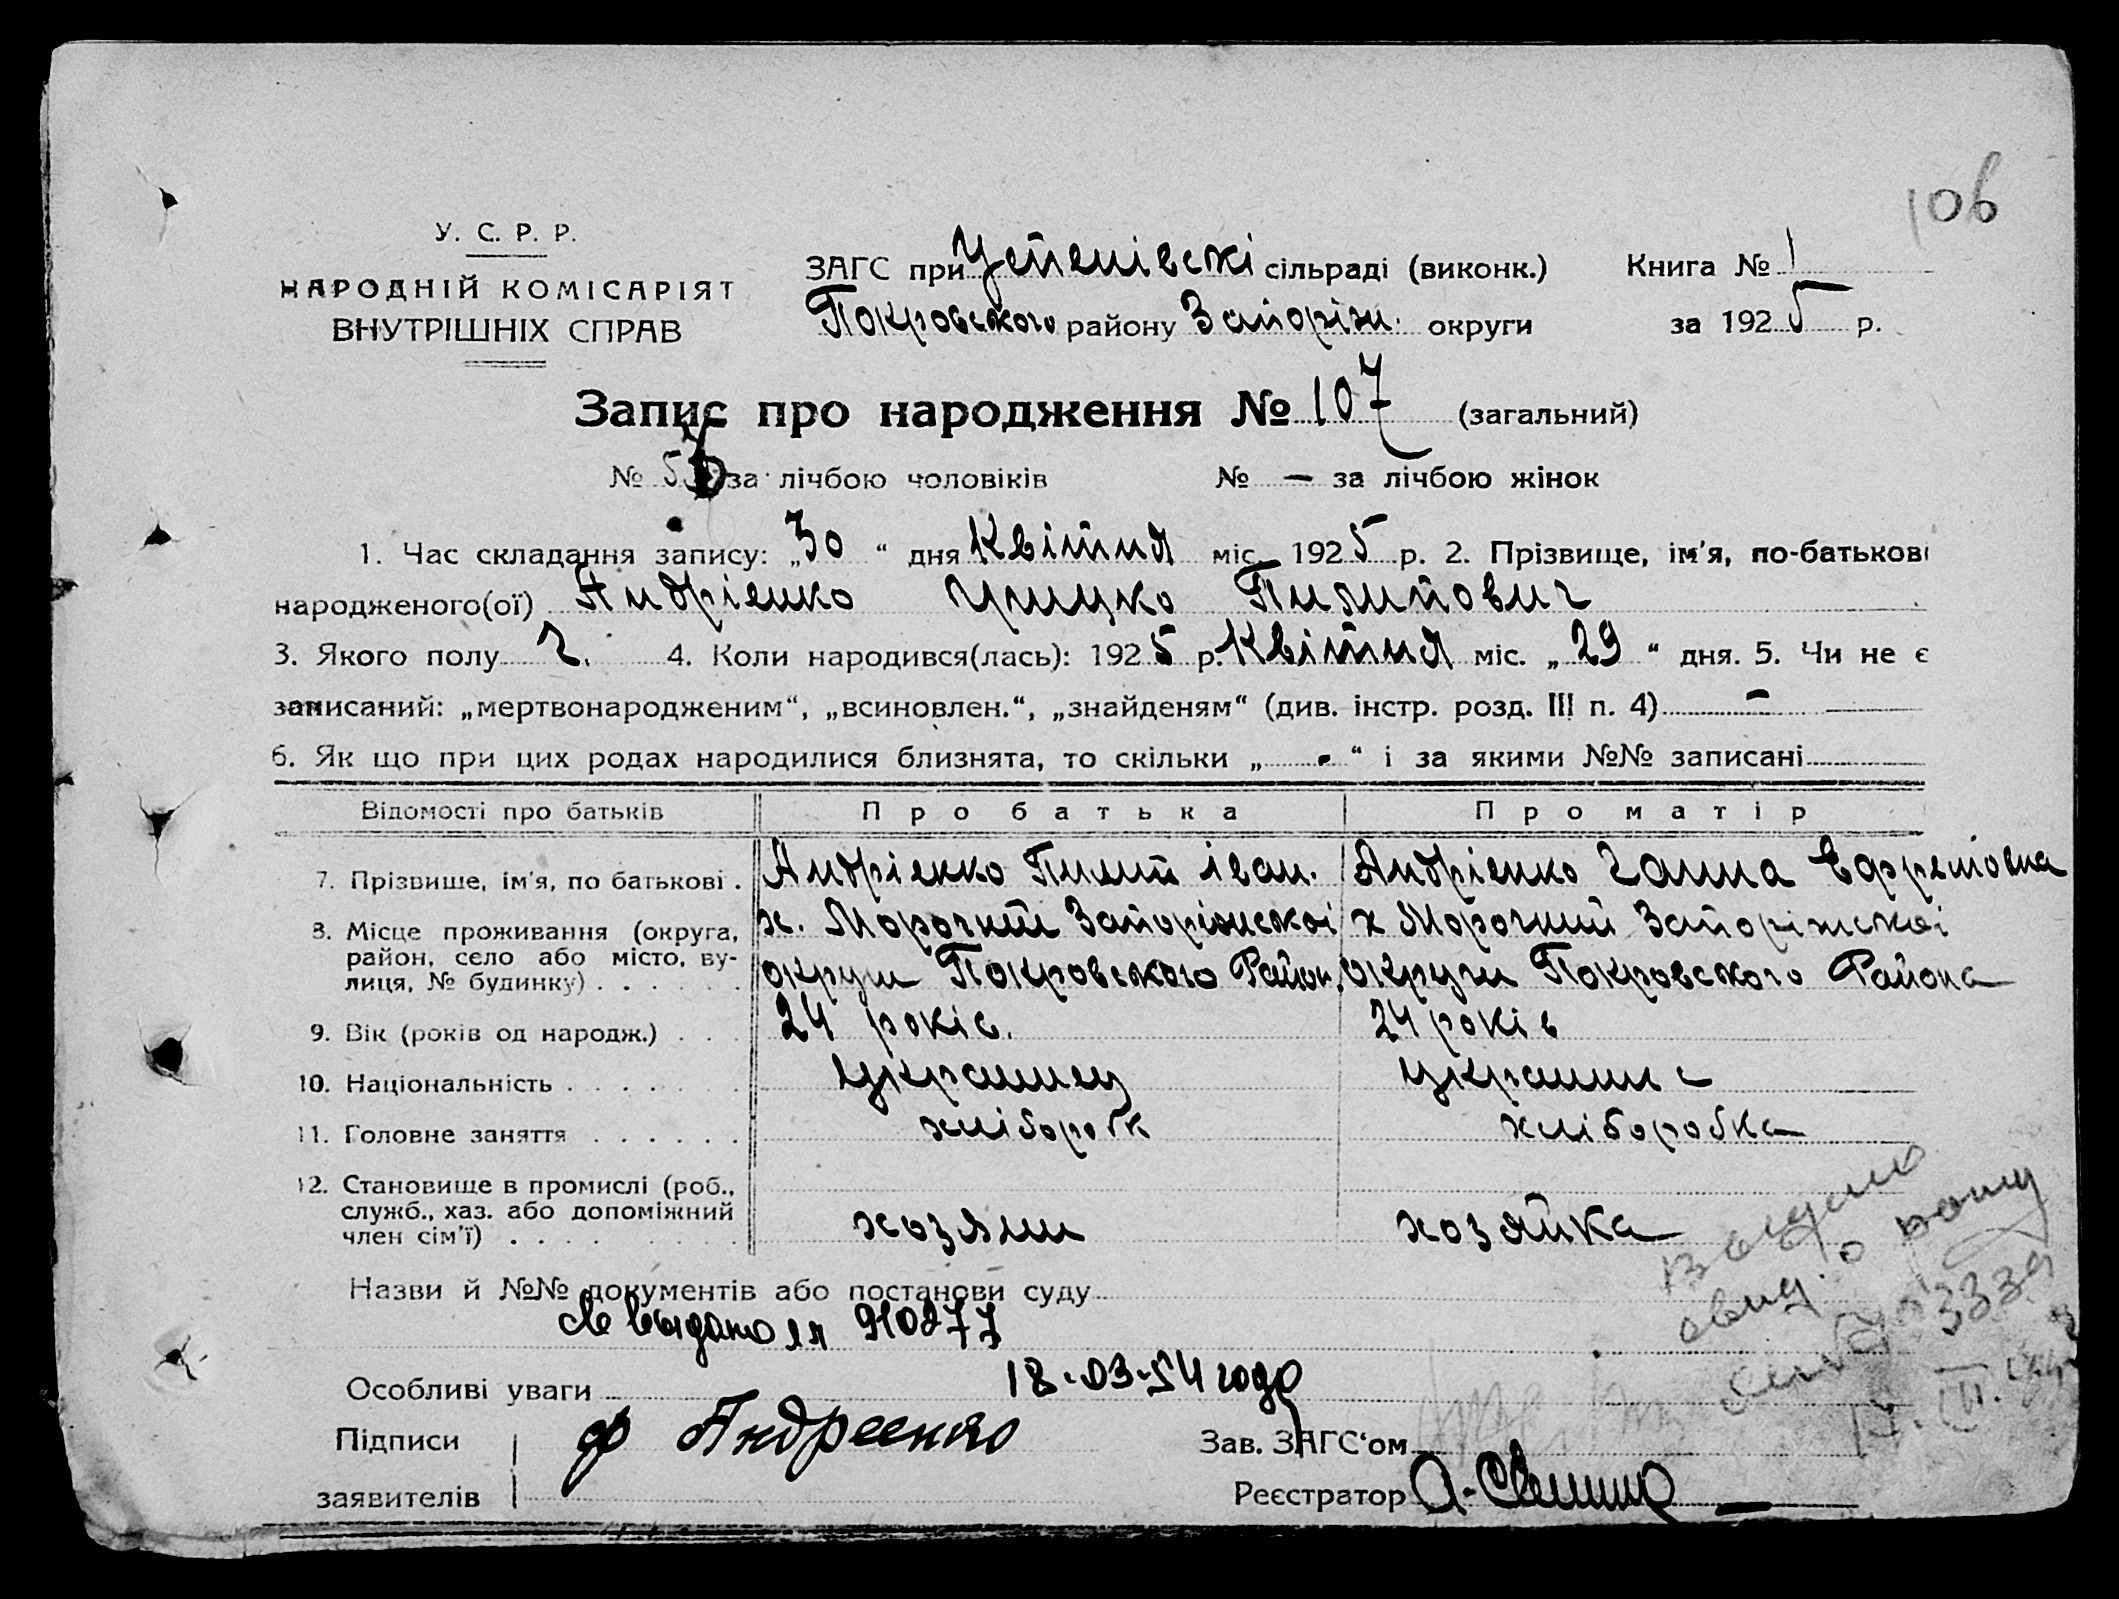 106
У. С. Р. Р.
НАРОДНІЙ КОМІСАРІЯТ
ВНУТРІШНІХ СПРАВ
ЗАГС при сільраді (виконк.) Книга № 1
Покровського району Запоріж. округи за 1925 р.
Запис про народження № 107 (загальний)
№ за лічбою чоловіків № — за лічбою жінок
1. Час складання запису: „30“ дня Квітня міс. 1925 р. 2. Прізвище, ім'я, по-батькові
народженого(ої) Андрієнко Грицко Пилипович
3. Якого полу ч. 4. Коли народився(лась): 1925 р. Квітня міс. „29“ дня. 5. Чи не є
записаний: „мертвонародженим“, „всиновлен.“, „знайденям“ (див. інстр. розд. III п. 4) -
6. Як що при цих родах народилися близнята, то скільки „ - “ і за якими №№ записані
Відомості про батьків Про батька Про матір
7. Прізвище, ім'я, по батькові . Андрієнко Пилип Іван. Андрієнко Ганна
8. Місце проживання (округа, район, село або місто, вулиця, № будинку) . . . . . .
х. Морочний Запоріжської х Морочний Запоріжської
округи Покровського Район. округи Покровського Района
9. Вік (років од народж.) . . . 24 років. 24 років
10. Національність . . . . . . . Українец Українка
11. Головне заняття . . . . . . хлібороб хлібородка
12. Становище в промислі (роб., служб., хаз. або допоміжний член сім'ї) . . . . . . . . хозяин хозяйка
Назви й №№ документів або постанови суду
св выдано 910277
18-03-54 года
Особливі уваги
Підписи ф Андреенко Зав. ЗАГС‘ом
заявителів Реєстратор А.
выдано